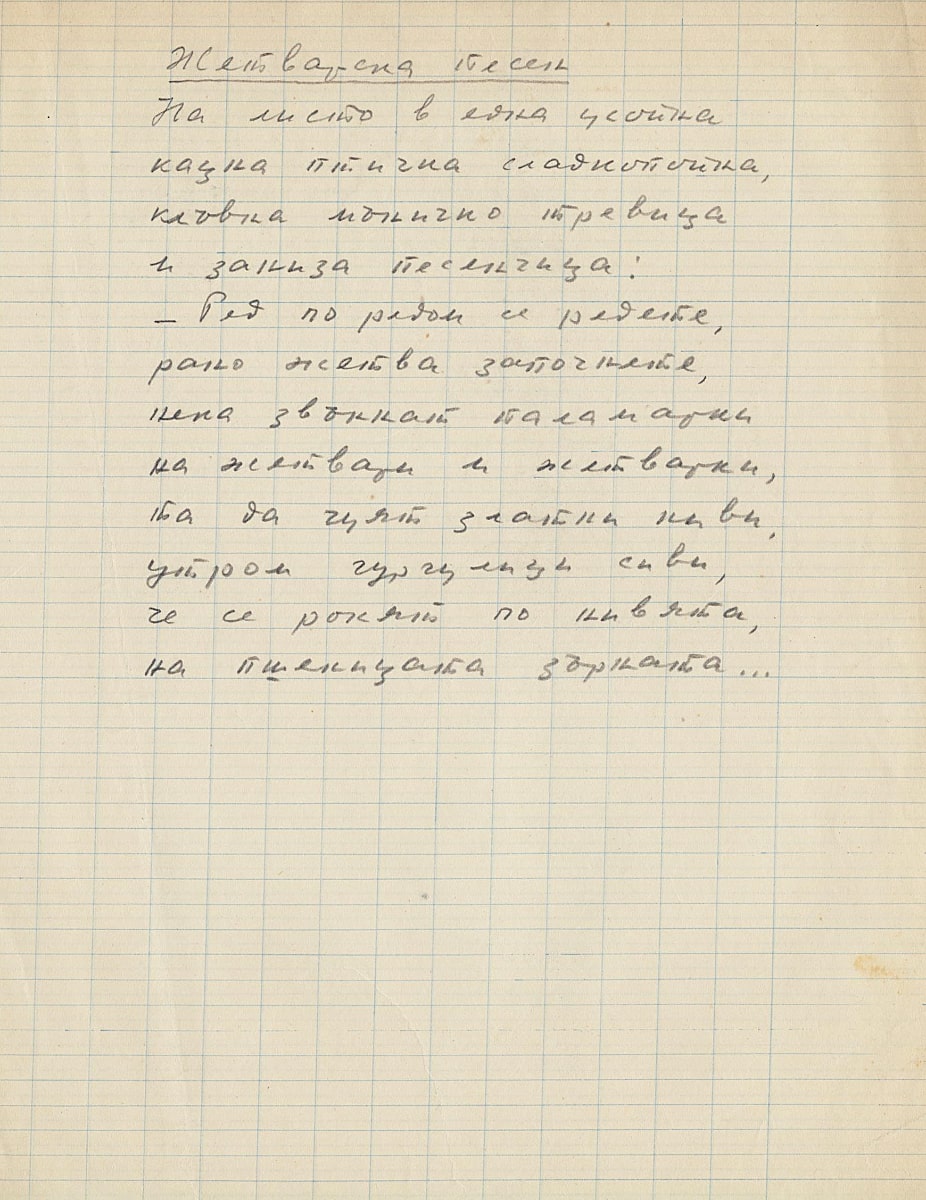 Жетварска песен
На листо в една усойка
кацна птичка сладкопойка,
клъвна мъничко тревица
и заниза песенчица:
– Ред по редом се редете,
рано жетва започнете,
нека звъннат паламарки
на жетвари и жетварки,
та да чуят златни ниви,
утром гургулици сиви,
че се ронят по нивята,
на пшеницата зърната...